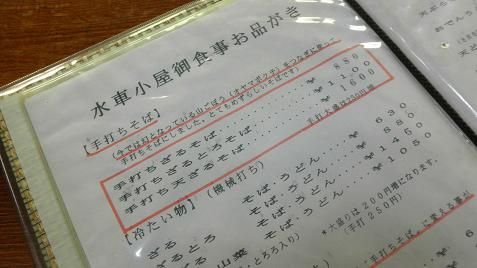 水車小屋御食事お品がき
【手打ちそば】
(今では幻となっている山ごぼう(オヤマボクチ)をつなぎに使って
手打ちそばにしました。とてもめずらしいそばです)
手打ちざるそば ¥ 880
手打ちざるとろそば ¥ 1100
手打ち天ざるそば ¥ 1600
手打大盛は250円増
【冷たい物】(機械打ち)
ざる そば・うどん ¥ 630
ざるとろ そば・うどん ¥ 880
山菜 そば・うどん ¥ 1050
とろろ入り)
そば・うどん 1450
*大盛りは200円増になります。
(手打250円)
手打ちそば
に変える事が
天ざ
おでん